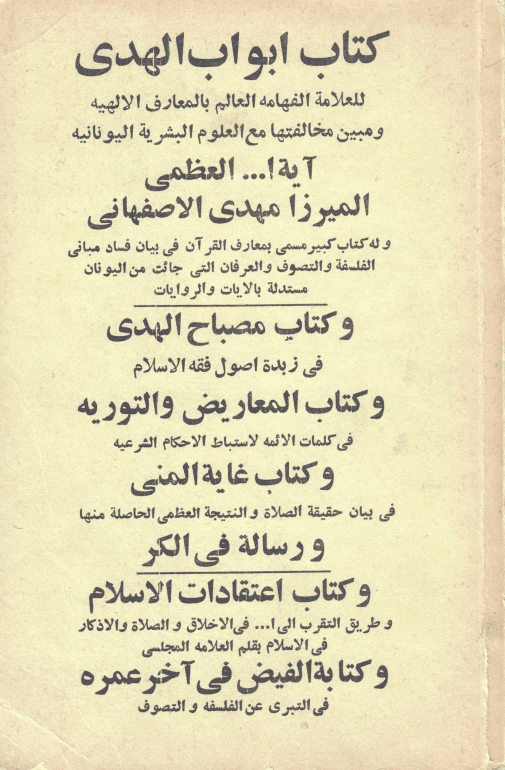 كتاب ابواب الهدى
للعلامة الفهامه العالم بالمعارف الالهيه
ومبين مخالفتها مع العلوم البشرية اليونانيه
آية ا... العظمى
الميرزا مهدى الاصفهانى
وله كتاب كبير مسمى بمعارف القرآن فى بيان فساد مبانى
الفلسفة والتصوف والعرفان التى جائت من اليونان
مستدلة بالايات والروايات
وكتاب مصباح الهدى
فى زبدة اصول فقه الاسلام
وكتاب المعاريض والتوريه
فى كلمات الائمه لاستباط الاحكام الشرعيه
وكتاب غاية المنى
فى بيان حقيقة الصلاة والنتيجة العظمى الحاصلة منها
ورسالة فى الكر
وكتاب اعتقادات الاسلام
وطريق التقرب الى ا... فى الاخلاق والصلاة والاذكار
فى الاسلام بقلم العلامه المجلسى
وكتابة الفيض فى آخر عمره
فى التبرى عن الفلسفه و التصوف